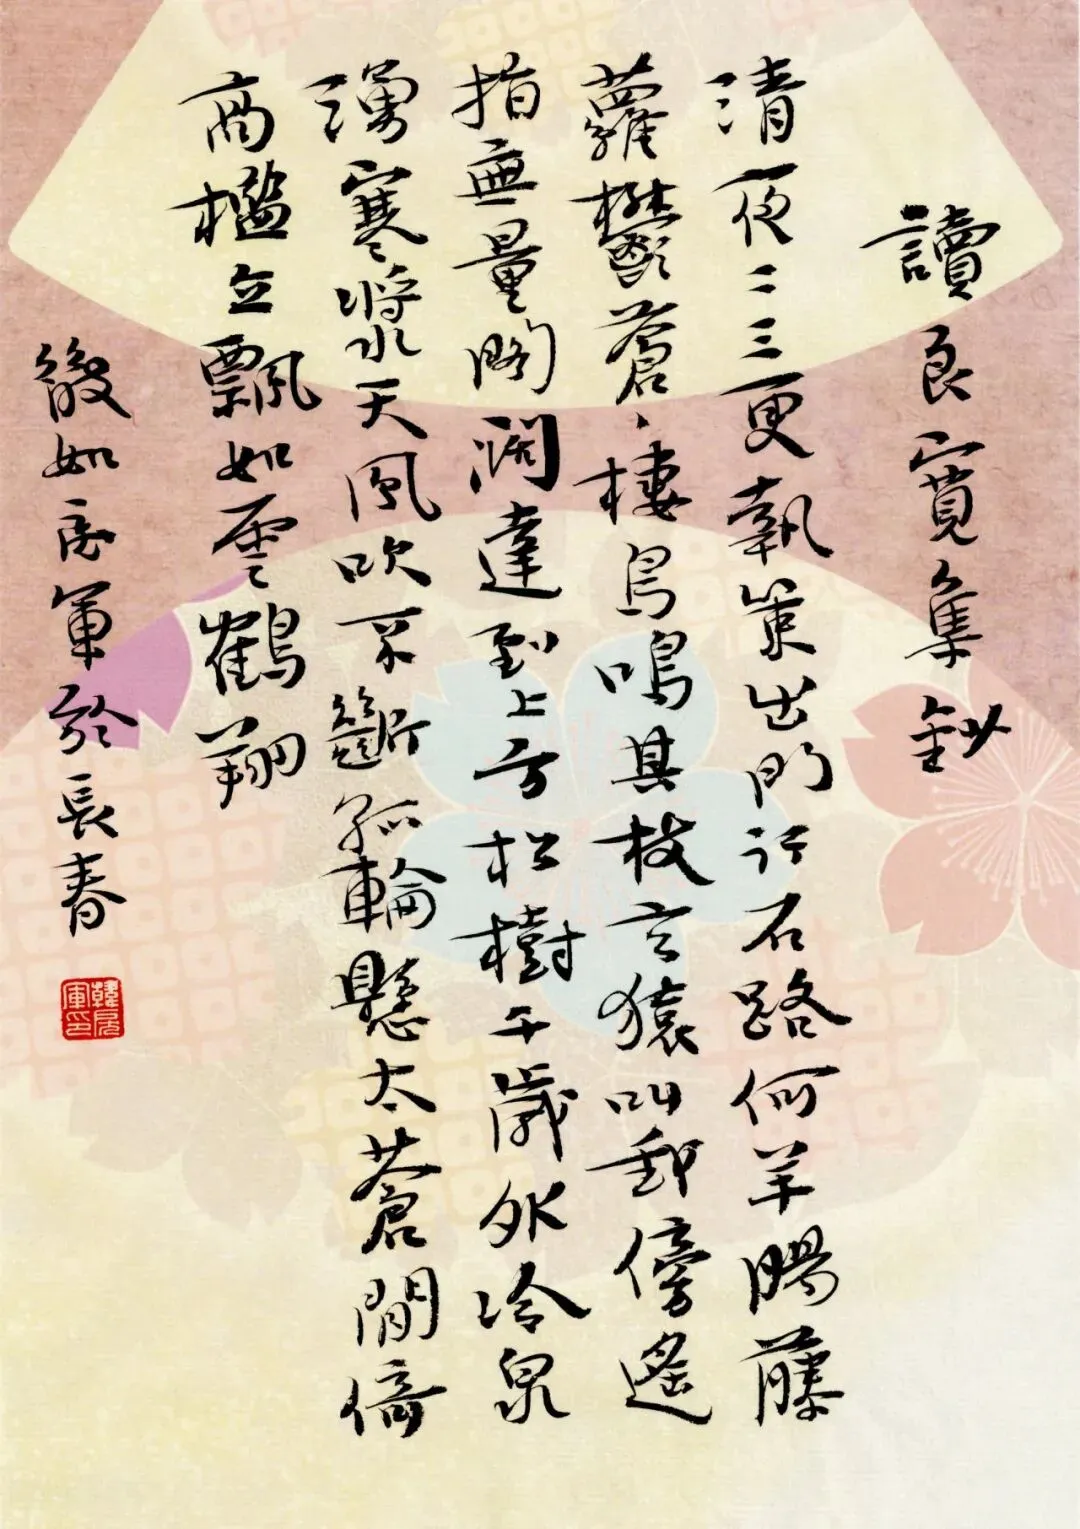 讀良寬集鈔
清夜二三更執策出門行石路何羊腸藤
蘿鬱蒼〻棲鳥鳴其枝玄猿叫傍遙
指無量閣濶達到上方松樹千歲外冷泉
湧寒漿天風吹不斷孤輪懸太蒼閒倚
高檻立飄如雲鶴翔
如居軍於長春
韓居軍印